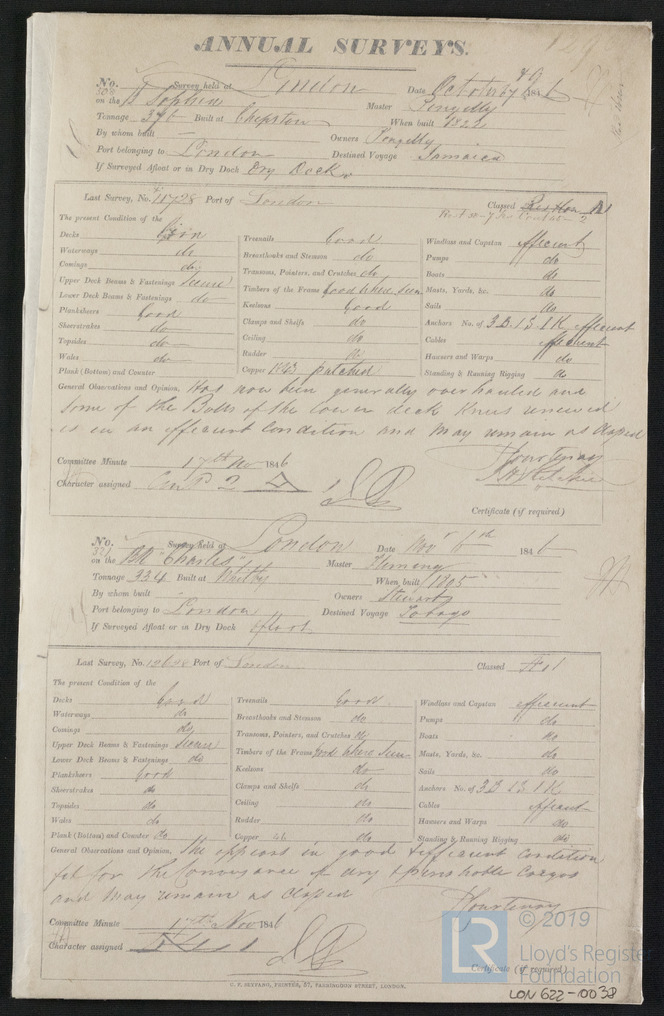 ANNUAL SURVEYS.
No. Survey held at London Date October 184 6
308 on the Sophia Master Pengelly
Tonnage Built at Chepstow When built 1822
By whom built — Owners Pengelly
Port belonging to London Destined Voyage Jamaica
If Surveyed Afloat or in Dry Dock Dry Dock
Last Survey, No. 11728 Port of London Classed
The present Condition of the
Decks Treenails Good Windlass and Capstan efficient
Waterways do Breasthooks and Stemson do Pumps do
Comings do Transoms, Pointers, and Crutches do Boats do
Upper Deck Beams & Fastenings secure Timbers of the Frame Good where seen Masts, Yards, &c. do
Lower Deck Beams & Fastenings do Keelsons Good Sails do
Planksheers Good Clamps and Shelfs do Anchors No. of 3 B. 1 S. 1 K. efficient
Sheerstrakes do Ceiling do Cables efficient
Topsides do Rudder do Hawsers and Warps do
Wales do Copper 1843 patched Standing & Running Rigging do
Plank (Bottom) and Counter
General Observations and Opinion, Has now been generally overhauled and
some of the Bolts of the lower deck Knees renewed
is in an efficient Condition and may remain as Classed
Courtenay
Committee Minute 17th Nov 184 6
Character assigned
Certificate (if required)
No. Survey held at London Date Nov 6th 184 6
321 on the Bk "Charles" Master Fleming
Tonnage 334 Built at Whitby When built
By whom built Owners Stewart
Port belonging to London Destined Voyage Tobago
If Surveyed Afloat or in Dry Dock Afloat
Last Survey, No. Port of London Classed
The present Condition of the
Decks Good Treenails Good Windlass and Capstan efficient
Waterways do Breasthooks and Stemson do Pumps do
Comings do Transoms, Pointers, and Crutches do Boats do
Upper Deck Beams & Fastenings secure Timbers of the Frame good where seen Masts, Yards, &c. do
Lower Deck Beams & Fastenings do Keelsons do Sails do
Planksheers Good Clamps and Shelfs do Anchors No. of 3 B 1 S. 1 K.
Sheerstrakes do Ceiling do Cables efficient
Topsides do Rudder do Hawsers and Warps do
Wales do Copper do Standing & Running Rigging do
Plank (Bottom) and Counter do
General Observations and Opinion, The appears in good & efficient Condition
fit for the Conveyance of dry & perishable Cargos
and may remain as Classed
Courtenay
Committee Minute Nov 184 6
Character assigned
Certificate (if required)
C. F. SEYFANG, PRINTER, 57, FARRINGDON STREET, LONDON.
LR © 2019
Lloyd's Register
Foundation
LON 622-0038